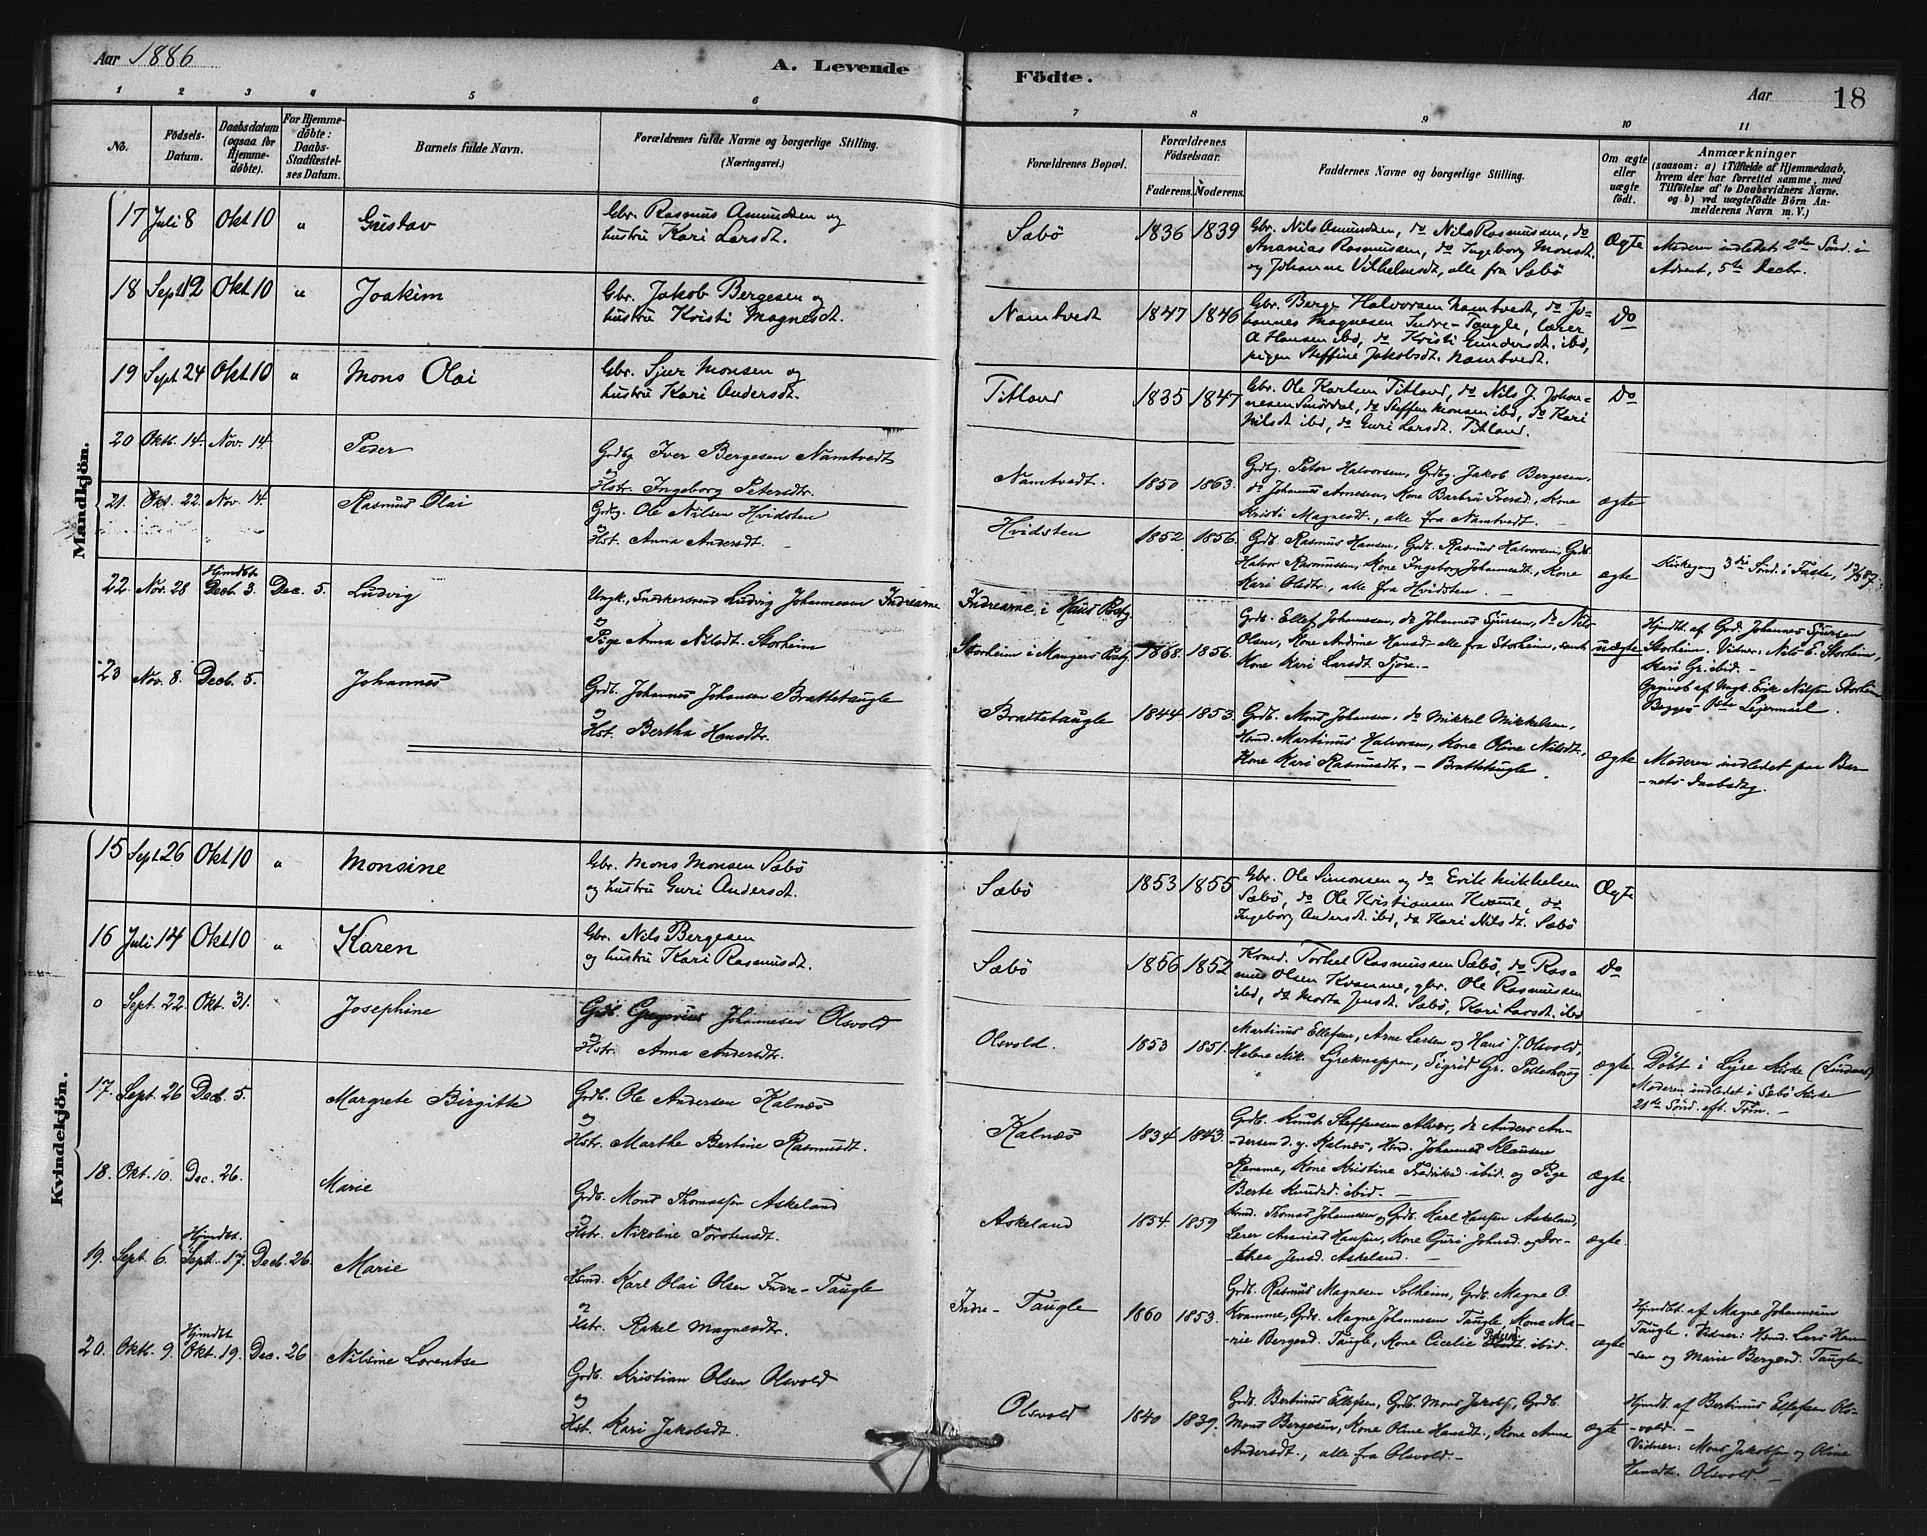 Aar 1886
A. Levende
Födte.
Aar
18
1 2 3 4 5 6
7 8 9 10 11
No.
Födsels-
Datum.
Daabsdatum
(ogsaa for
Hjemme-
döbte).
For Hjemme-
döbte:
Daabs-
Stadfæstel-
ses Datum.
Barnets fulde Navn.
Forældrenes fulde Navne og borgerlige Stilling.
(Næringsvei.)
Forældrenes Bopæl.
Forældrenes
Födselsaar.
Faderens. Moderens.
Faddernes Navne og borgerlige Stilling.
Om ægte
eller
uægte
födt.
Anmærkninger
(saasom: a) i Tilfælde af Hjemmedaab,
hvem der har forrettet samme, med
Tilföielse af to Daabsvidners Navne,
og b) ved uægtefödte Börn An-
melderens Navn m. V.)
Mandkjön.
17 Juli 8 Okt 10 " Gustav
Gbr. Rasmus Asmundsen og
hustru Kari Larsdt.
Sæbö 1836 1839
Gbr. Nils Asmundsen, do Nils Rasmussen, do
Ananias Rasmussen, do Ingeborg Monsdt.
og Johanne Vilhelmsdt, alle fra Sæbö
Ægte
Moderen indledet 2den Sönd. i
Advent, 5te Decbr.
18 Sept 12 Okt 10 " Joakim
Gbr. Jakob Bergesen og
hustru Kristi Magnesdt.
Namtvedt 1847 1846
Gbr. Berge Halvorsen Namtvedt, do Jo-
hannes Magnesen Indre-Taugle, lærer
A Hansen ibd, do Kristi Gundersdt. ibd,
pigen Steffine Jakobsdt. Namtvedt.
Do
19 Sept 24 Okt 10 " Mons Olai
Gbr. Sjur Monsen og
hustru Kari Andersdt.
Titland 1835 1847
Gbr. Ole Karlsen Titland, do Nils J. Johan-
nesen Smördal, do Steffen Monsen ibd, do Kari
Nilsdt ibd, do Guri Larsdt. Titland.
Do
20 Okt. 14. Nov. 14. Peder
Grdbg Iver Bergesen Namtvedt
og
Hstr. Ingeborg Petersdtr.
Namtvedt. 1850 1863.
Grdbg. Peter Halvorsen, Grdbg. Jakob Bergesen,
do Johannes Arnesen, Kone Barbru Iversd., Kone
Kristi Magnesdt., alle fra Namtvedt.
ægte
21. Okt. 22. Nov. 14. Rasmus Olai
Grdbg. Ole Nilsen Hvidsten
og
Hst. Anna Andersdt.
Hvidsten 1852. 1856.
Grdb. Rasmus Hansen, Grdb. Rasmus Halvorsen, Grdb.
Halvor Rasmussen, Kone Ingeborg Johannesdt., Kone
Kari Olsdtr, alle fra Hvidsten.
ægte
Kirkegang 3die Sönd. i Faste, 13/3 87.
22. Nov. 28 Hjmdbt. Decb. 3. Dec. 5. Ludvig
Ungk., Snedkersvend Ludvig Johannesen Indrearne
og
Pige Anna Nilsdt. Storheim
Indrearne i Haus Pstg.
Storheim i Mangers Pstg. 1868. 1856.
Grdb. Ellef Johannesen, do Johannes Sjursen, do Nils
Olsen, Kone Andrine Hansd. alle fra Storheim, samt
Kone Kari Larsdt. Fjøse.
uægte
Hjmdbt. af Grd. Johannes Sjursen
Storheim. Vidner: Nils E. Storheim,
Kari Gr. ibid.
Opgivet af Ungk. Erik Nilsen Storheim
Begges 1ste Leiermaal.
23 Nov. 8. Decb. 5. Johannes
Grdb. Johannes Johansen Brattetaugle
og
Hst. Bertha Hansdtr.
Brattetaugle 1844 1853.
Grdb. Mons Johansen, do Mikkel Mikkelsen,
Hsmd. Martinus Halvorsen, Kone Oline Nilsdt.,
Kone Kari Rasmusdtr. Brattetaugle.
ægte
Moderen indledet paa Bar-
nets Daabsdag.
Kvindekjön.
15 Sept 26 Okt 10 " Monsine
Gbr. Mons Monsen Sæbö
og hustru Guri Andersdt.
Sæbö 1853 1855
Gbr. Ole Simonsen og do Erik Mikkelsen
Sæbö, do Ole Kristiansen Kvame, do
Ingeborg Andersdt. ibd, do Kari Nilsdt. Sæbö
Ægte
16 Juli 14 Okt 10 " Karen
Gbr. Nils Bergesen
og hustru Kari Rasmusdt.
Sæbö 1856 1852
Kvmd. Torkel Rasmussen Sæbö, do Ras-
mus Olsen Kvamme, gbr. Ole Rasmussen
ibd, do Marta Jensdt. Sæbö, Kari Larsdt. ibd
Do
0 Sept. 22. Okt. 31. Josephine
Grdb. Gregorius Johannesen Olsvold
og
Hstr. Anna Andersdtr.
Olsvold. 1853 1851.
Martinus Ellefsen, Arne Larsen og Hans J. Olsvold,
Helene Nik. Lyreknappen, Sigrid Gr.
ægte
Döbt i Lyse Kirke (Lindaas)
Moderen indledet i Sæbö Kirke
21de Sönd. eft. Trin.
17. Sept. 26 Decb. 5. Margrete Birgitte
Grdb. Ole Andersen Kalnæs
og
Hstr. Marthe Bertine Rasmusdt.
Kalnæs 1834 1843.
Grdb. Knut Steffensen Alver, do Anders An-
dersen d. y. Kalnæs, Hsmd. Johannes Klausen
Remme, Kone Kristine Fredriksd. ibid. og Pige
Berte Knudsd. ibid.
ægte
18. Okt. 10. Dec. 26. Marie
Grdb. Mons Thomassen Askeland
og
Hstr. Nikoline Torstensdt.
Askeland 1854. 1859
Hsmd. Thomas Johannesen, Grdb. Karl Hansen Askeland,
Lærer Ananias Hansen, Kone Guri Johnsd. og Dor-
thea Jensd. Askeland.
ægte.
19. Sept. 6. Hjmdbt. Sept. 17. Decb. 26. Marie
Hsmd. Karl Olai Olsen Indre-Taugle
og
Hstr. Rakel Magnesdtr.
Indre-Taugle 1860 1853.
Grdb. Rasmus Magnesen Solheim, Grdb. Magne O.
Kvamme, Grdb. Magne Johannesen Taugle, Kone Ma-
rie Bergesd. Taugle, Kone Cicelie ibid.
ægte
Hjmdbt. af Magne Johannesen
Taugle. Vidner: Hsmd. Lars Han-
sen og Marie Bergesd. Taugle.
20. Okt. 9. Hjmdbt. Okt. 19. Dec. 26 Nilsine Lorentse
Grdb. Kristian Olsen Olsvold
og
Hst. Kari Jakobsdt.
Olsvold 1840 1839.
Grdb. Bertinus Ellefsen, Grdb. Mons Jakobs., Grdb.
Mons Bergesen, Kone Oline Hansdt., Kone Anna
Andersdt., alle fra Olsvold.
ægte
Hjmdbt. af Bertinus Ellefsen Ols-
vold.
Vidner: Mons Jakobsen og Oline
Hansdt. Olsvold.